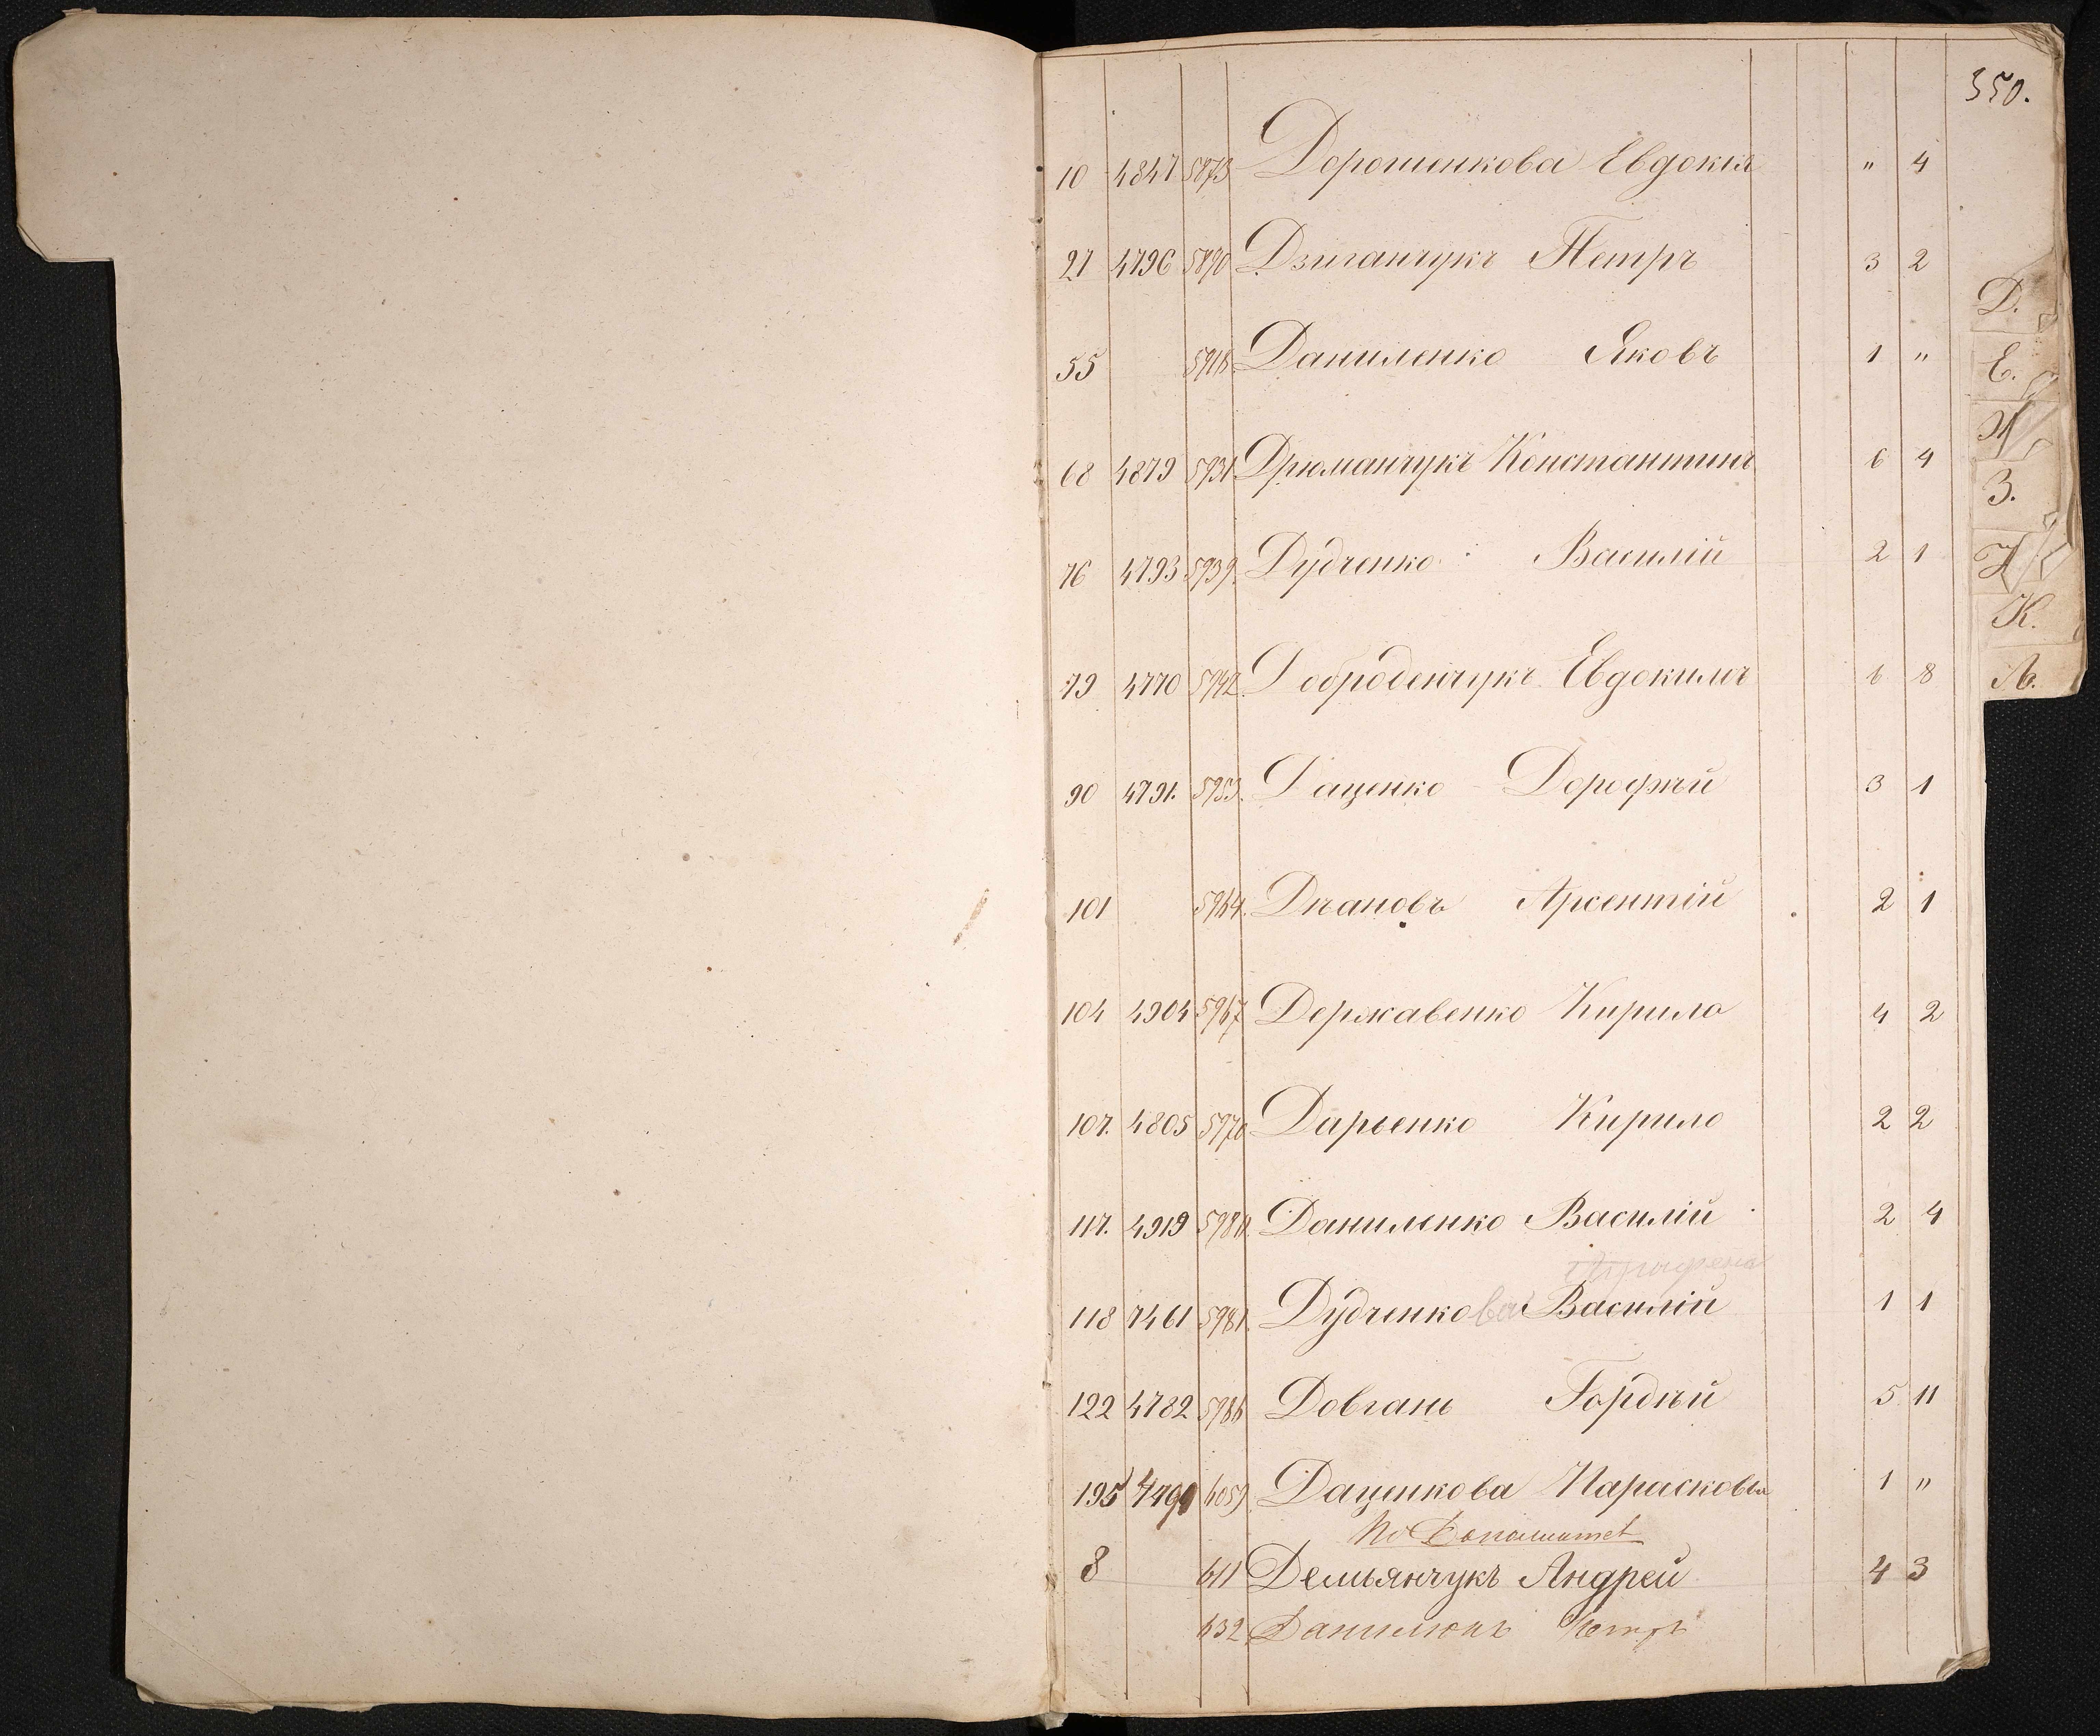 350.
10 4847 5873 Дорошенкова Евдокія " 4
27 4796 5890 Дзиганчукъ Петръ 3 2
55 5918 Даниленко Яковъ 1 "
68 4879 5931 Дрюманчукъ Константинъ 6 4
76 4793 5939. Дудченко Василій 2 1
79 4770 5942. Добробенчукъ Евдокимъ 6 8
90 4791. 5953. Даценко Дорофѣй 3 1
101 5964. Дѣановъ Арсентій 2 1
104 4904 5967 Державенко Кирило 4 2
107. 4805 5970 Дарьенко Кирило 2 2
117. 4919 5980. Даниленко Василій 2 4
118 7461 5981. Дудченкова Василій 1 1
122 4782 5986 Довгань Гордѣй 5 11
195 6059 Даценкова Парасковья 1 "
8 611 Демьянчукъ Андрей 4 3
632 Данилюкъ Петръ
Д.
Е.
Ж
З.
И
К.
Л.